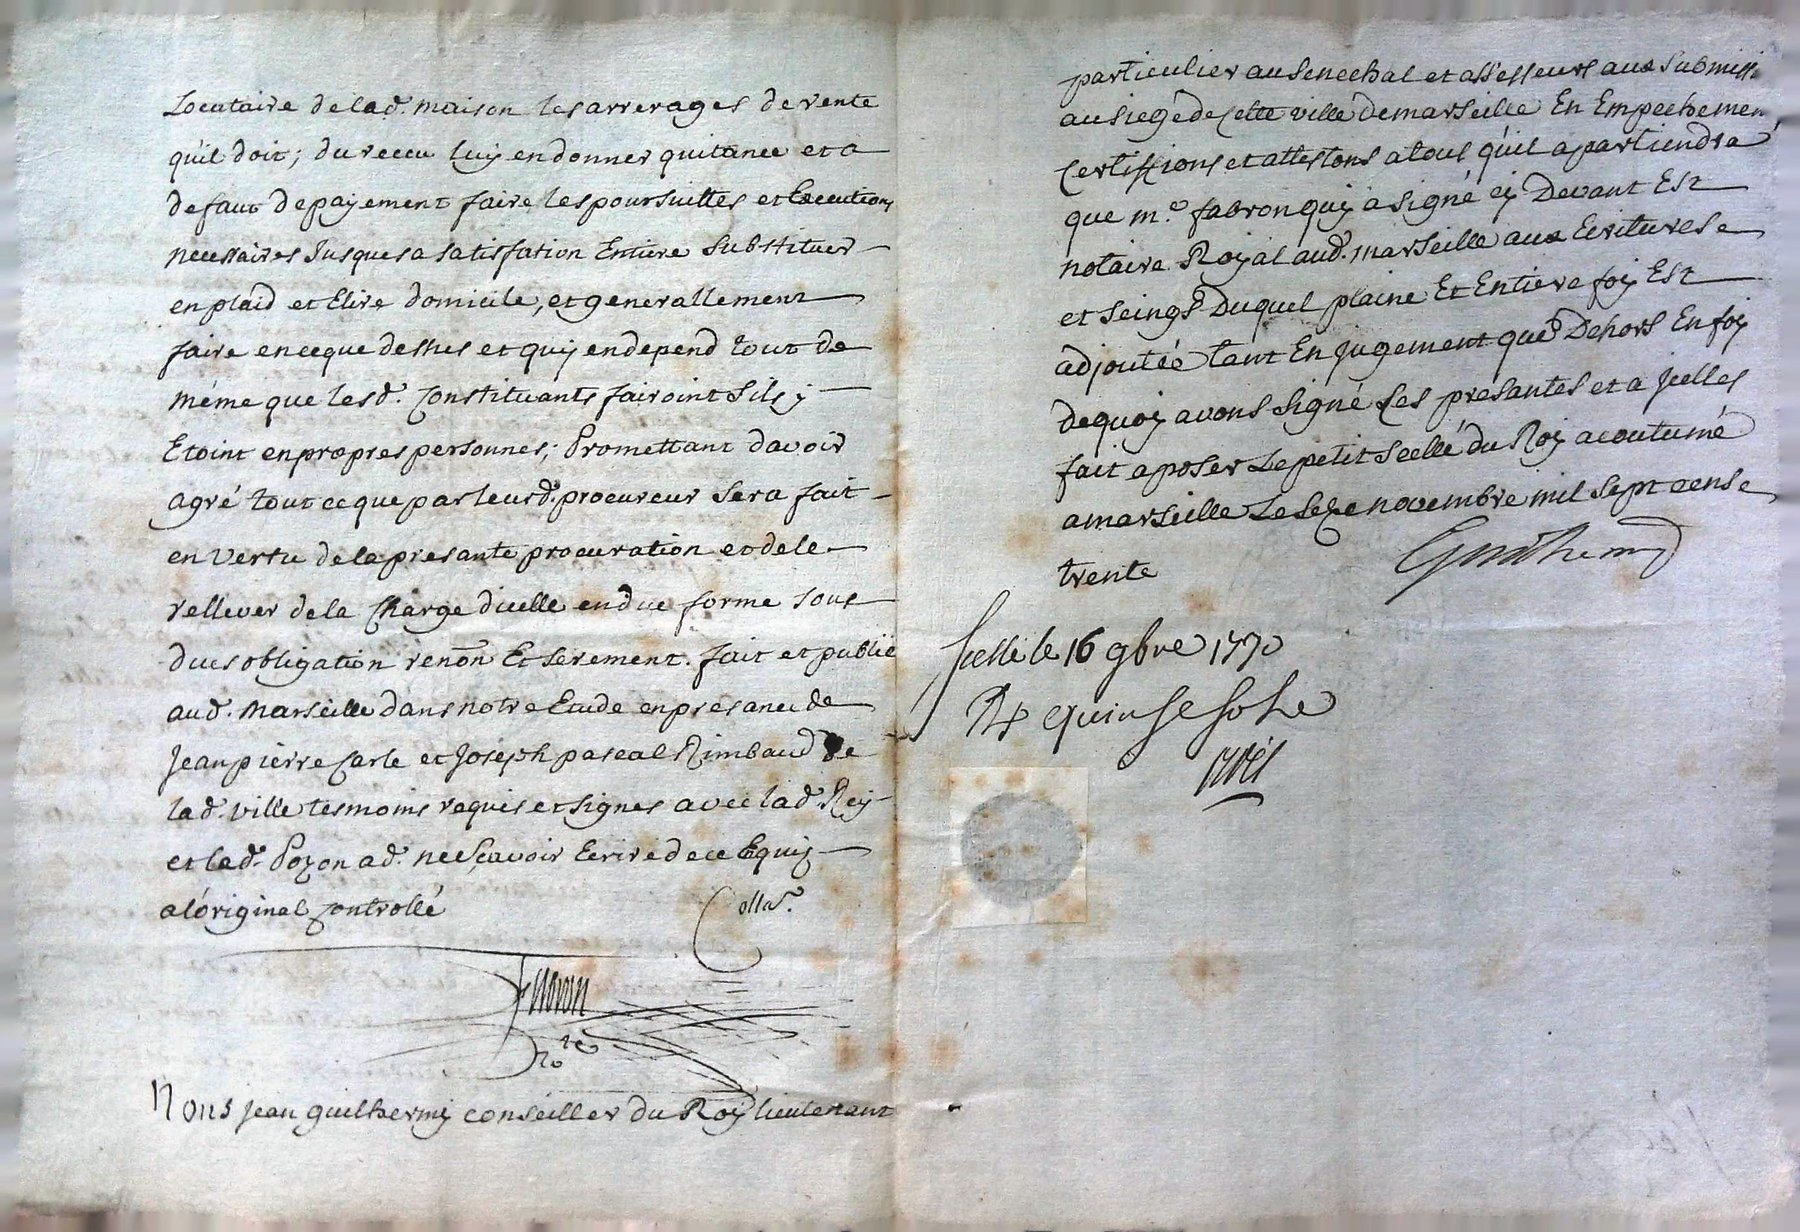 Locataire de lad. maison les arrerages de rente
quil doit; du receu luy en donner quitance et a
defaut depayement faire les poursuittes et Executions
necessaires Jusques a satisfation Entiere substituer
en plaid et Elire domicile, et generallement
faire en ceque dessus et quy en depend tout de
méme que lesd. Constituants fairoint sils y
Etoint en propres personnes; Promettant davoir
agré tout ce que par leurd. procureur sera fait
en vertu de la presante procuration et de le
rellever de la Charge dicelle en due forme sous
dues obligation renon Et serement. fait et publié
aud. Marseille dans notre Etude en presance de
Jean pierre Carle et Joseph pascal Rimbaud de
lad. ville tesmoins requis et signes avec lad. Rey
et led. Pozon ad. ne sçavoir Ecrire de ce Equis
a l'original controllé Colla.
No.re
Nous jean guilhermy conseiller du Roy lieutenant
particulier au senechal et assesseurs aux submissi
au siege de Cette ville de marseille En Empechemen
Certiffions et attestons a tous qu'il apartiendra
que m.e fabron quy a signé cy Devant Est
notaire Royal aud. marseille aux Ecritures e
et seings Duquel plaine Et Entiere foy Est
adjoutée tant En jugement que Dehors En foy
dequoy avons signé les présantes et a Jcelles
fait aposer Le petit scellé du Roy acoutumé
a marseille Le seze novembre mil sept cens e
trente
Guilhermy
scellé le 16 9bre 1730
R quinse sols